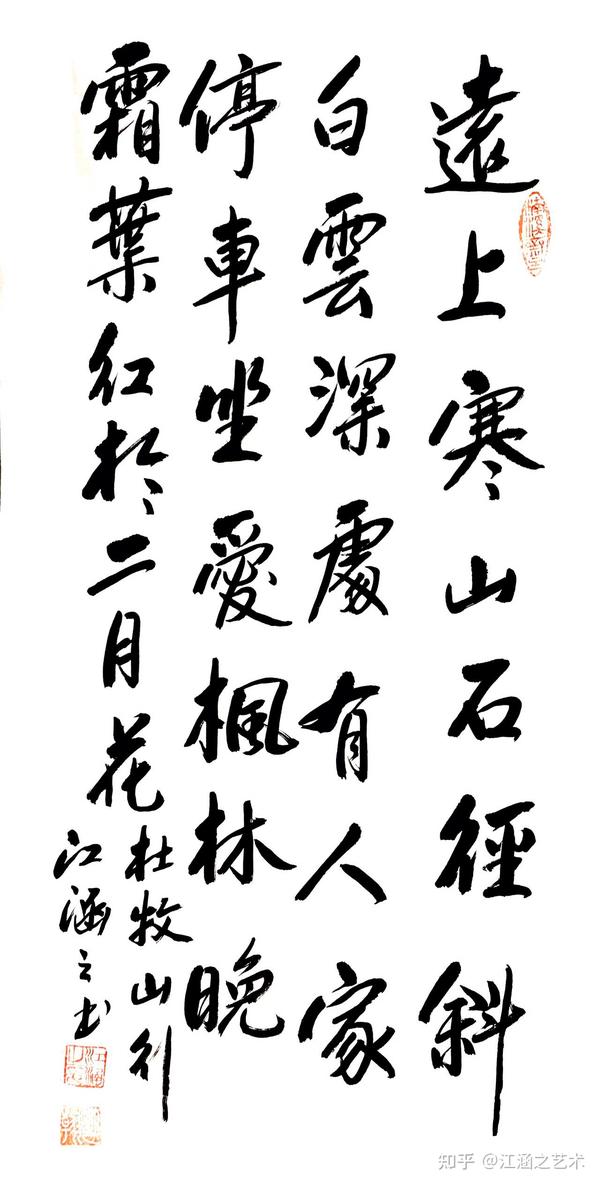 遠上寒山石徑斜
白雲深處有人家
停車坐愛楓林晚
霜葉紅於二月花
杜牧山行
江涵之书
知乎 @江涵之艺术